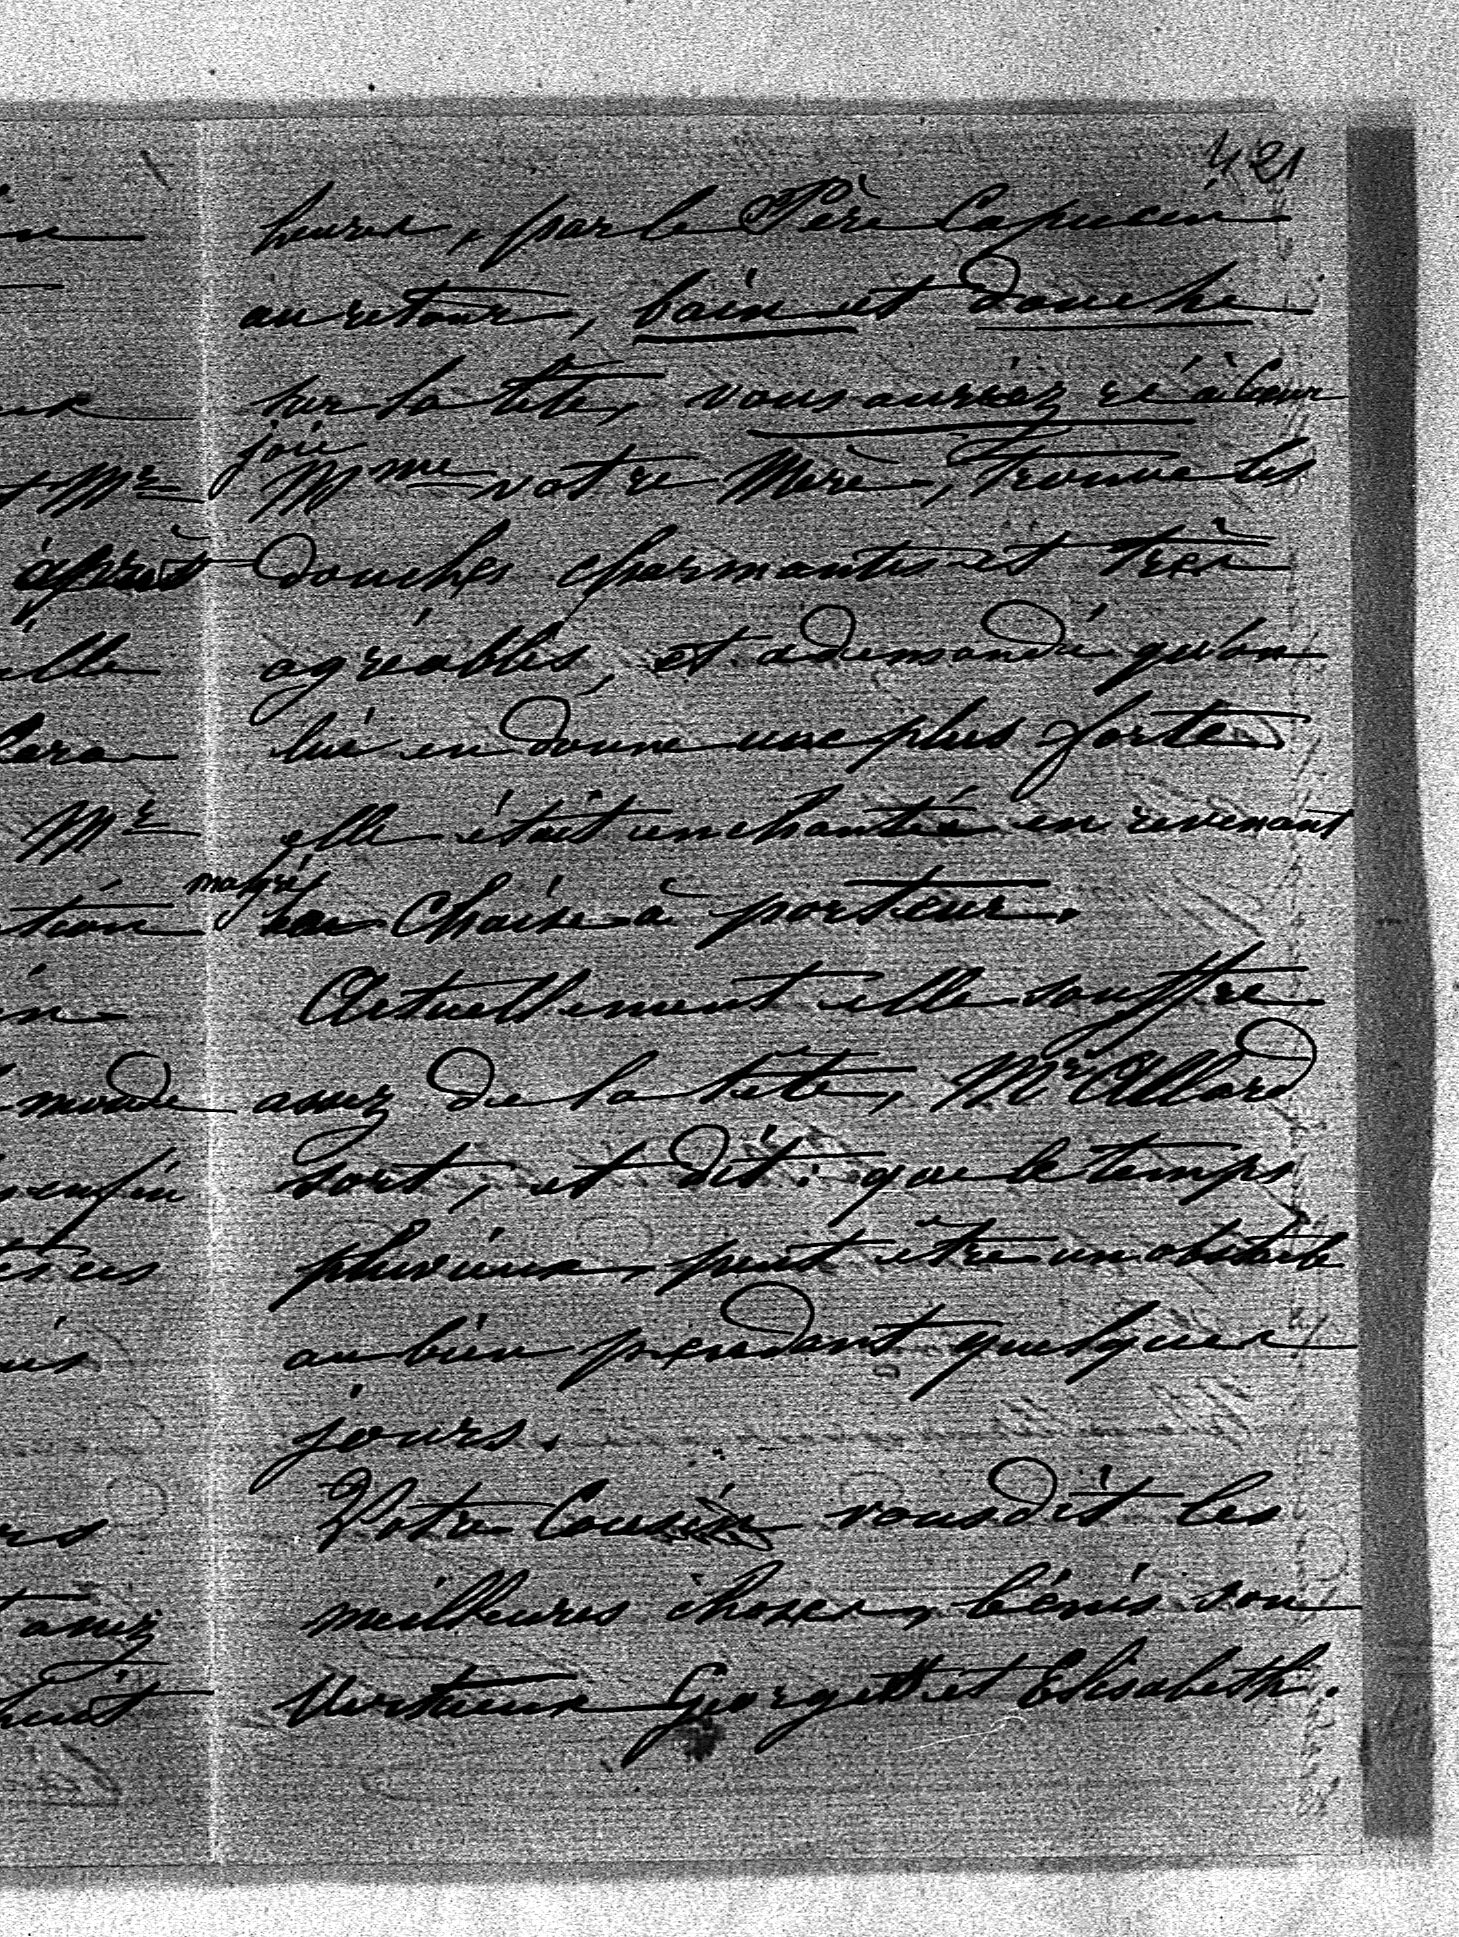 421
heures, par le Père Capucin
au retour, bain et douche
sur la tête, vous auriez ri à coeur
joie
Mme votre Mère, trouve les
douches charmantes et très
agréables, et a demandé qu'on
lui en donne une plus forte
elle était enchantée en revenant
malgré
sa Chaise à porteur.
Actuellement elle souffre
assez de la tête, Mr Allard
sort, et dit: que le temps
pluvieux, peut être un obstacle
au bien pendant quelques
jours.
Votre Cousin vous dit les
meilleures choses, bénis son
vertueux Georget et Elisabeth.
Mr
après
Mr
monde
enfin
assez